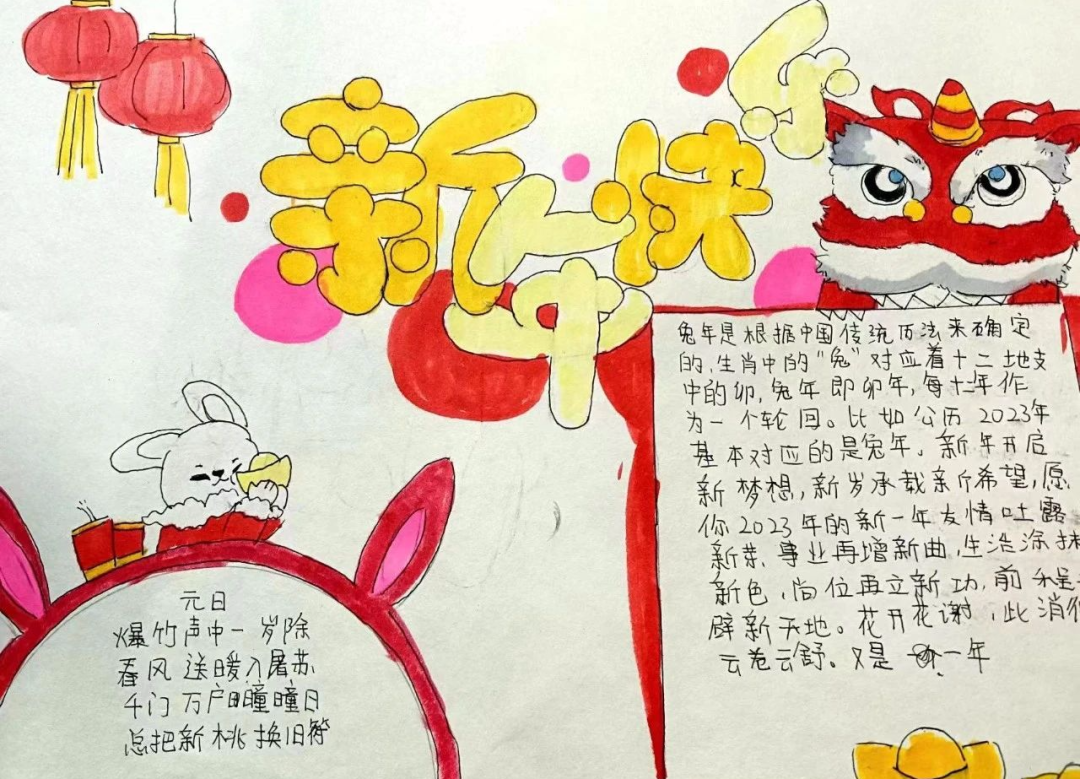 新年快乐
元日
爆竹声中一岁除
春风送暖入屠苏
千门万户曈曈日
总把新桃换旧符
兔年是根据中国传统历法来确定
的,生肖中的"兔"对应着十二地支
中的卯,兔年即卯年,每十二年作
为一个轮回。比如公历2023年
基本对应的是兔年。新年开启
新梦想,新岁承载新希望,愿
你2023年的新一年友情吐露
新芽、事业再增新曲,生活涂抹
新色,岗位再立新功,前
辟新天地。花开花谢,此消
云卷云舒。又是一年